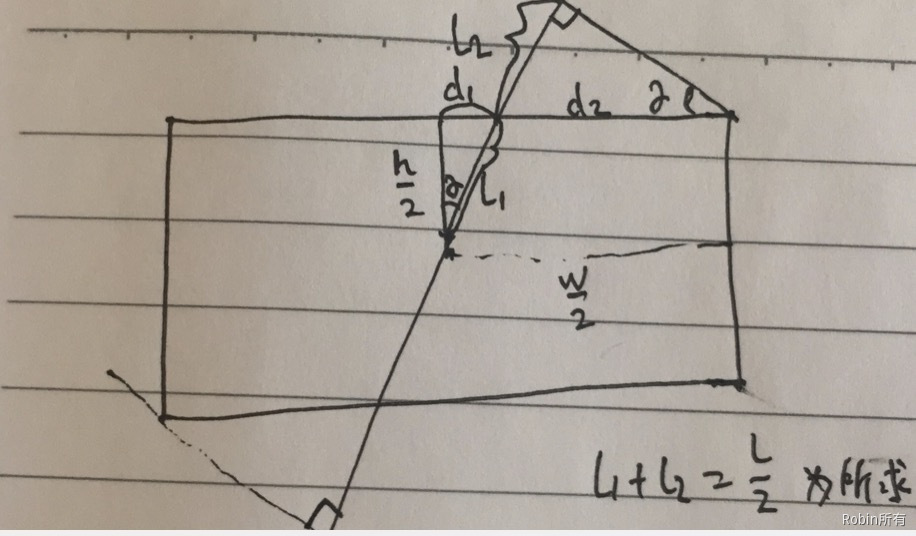 l2
d1
d2
∂
h/2
∂
l1
w/2
l1 + l2 = l/2 为所求
Robin所有